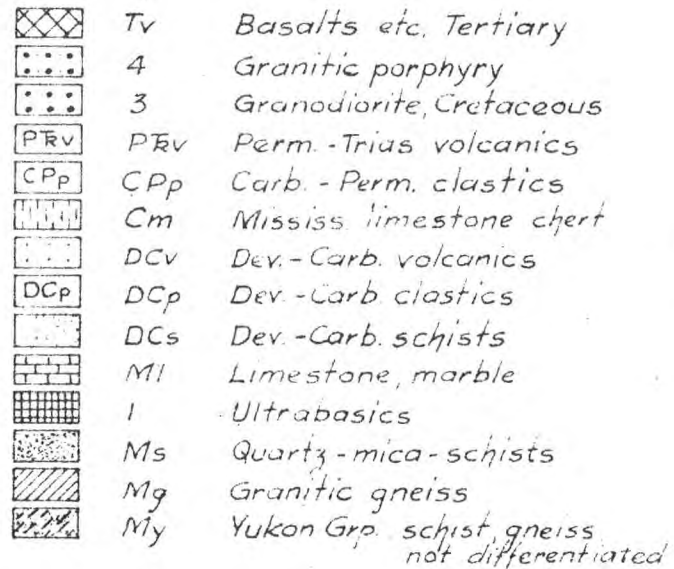 Tv Basalts etc, Tertiary
4 Granitic porphyry
3 Granodiorite, Cretaceous
PTRv PTRv Perm. - Trias volcanics
CPp CPp Carb. - Perm. clastics
Cm Mississ limestone chert
DCv Dev. - Carb. volcanics
DCp DCp Dev. - Carb clastics
DCs Dev. - Carb. schists
Ml Limestone, marble
1 Ultrabasics
Ms Quartz - mica - schists
Mg Granitic gneiss
My Yukon Grp. schist, gneiss
not differentiated